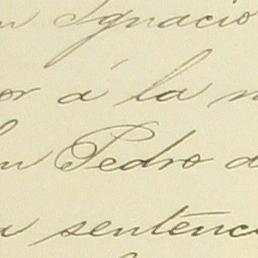 Ignacio
or á la
Pedro
sentenc